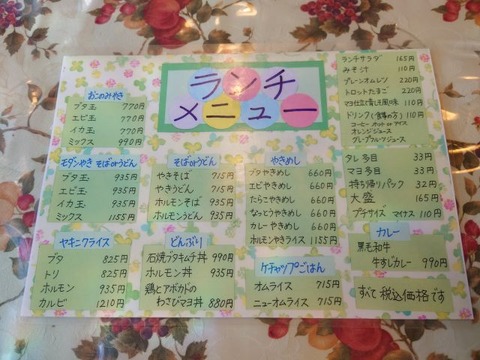 ランチ
メニュー
おこのみやき
ブタ玉 770円
エビ玉 770円
イカ玉 770円
ミックス 990円
モダンやき そばorうどん
ブタ玉 935円
エビ玉 935円
イカ玉 935円
ミックス 1155円
そばorうどん
やきそば 715円
やきうどん 715円
ホルモンそば 935円
ホルモンうどん 935円
やきめし
ブタやきめし 660円
エビやきめし 660円
たらこやきめし 660円
なっとうやきめし 660円
カレーやきめし 660円
ホルモンやきライス 110円
ヤキニクライス
ブタ 825円
トリ 825円
ホルモン 935円
カルビ 1210円
どんぶり
石焼ブタキムチ丼 990円
ホルモン丼 935円
鶏とアボカドの
わさびマヨ丼 880円
ケチャップごはん
オムライス 715円
ニューオムライス 715円
ランチサラダ 165円
みそ汁 110円
プレーンオムレツ 220円
トロットたまご 220円
マヨ 110円
ドリンク(食事の方) 110円
コーヒー ホット or アイス
オレンジジュース
グレープフルーツジュース
タレ多目 33円
マヨ多目 33円
持ち帰りパック 32円
大盛 165円
プチサイズ マイナス 110円
カレー
黒毛和牛
牛すじカレー 990円
すべて税込価格です